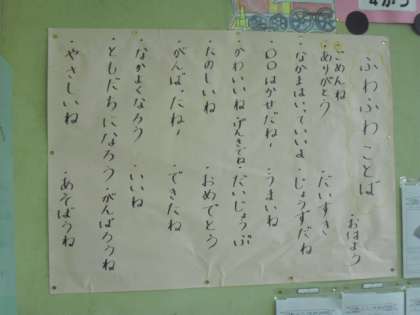 ふわふわ ことば
・ごめんね　・おはよう
・ありがとう　・だいすき
・なかまはいっていいよ　・じょうずだね
・〇〇はかせだね！　・うまいね
・かわいいね・げんきでね・だいじょうぶ
・たのしいね　・おめでとう
・がんばったね！　・できたね
・なかよくなろう　・いいね
・ともだちになろう・がんばろうね
・やさしいね　・あそぼうね
4がつ